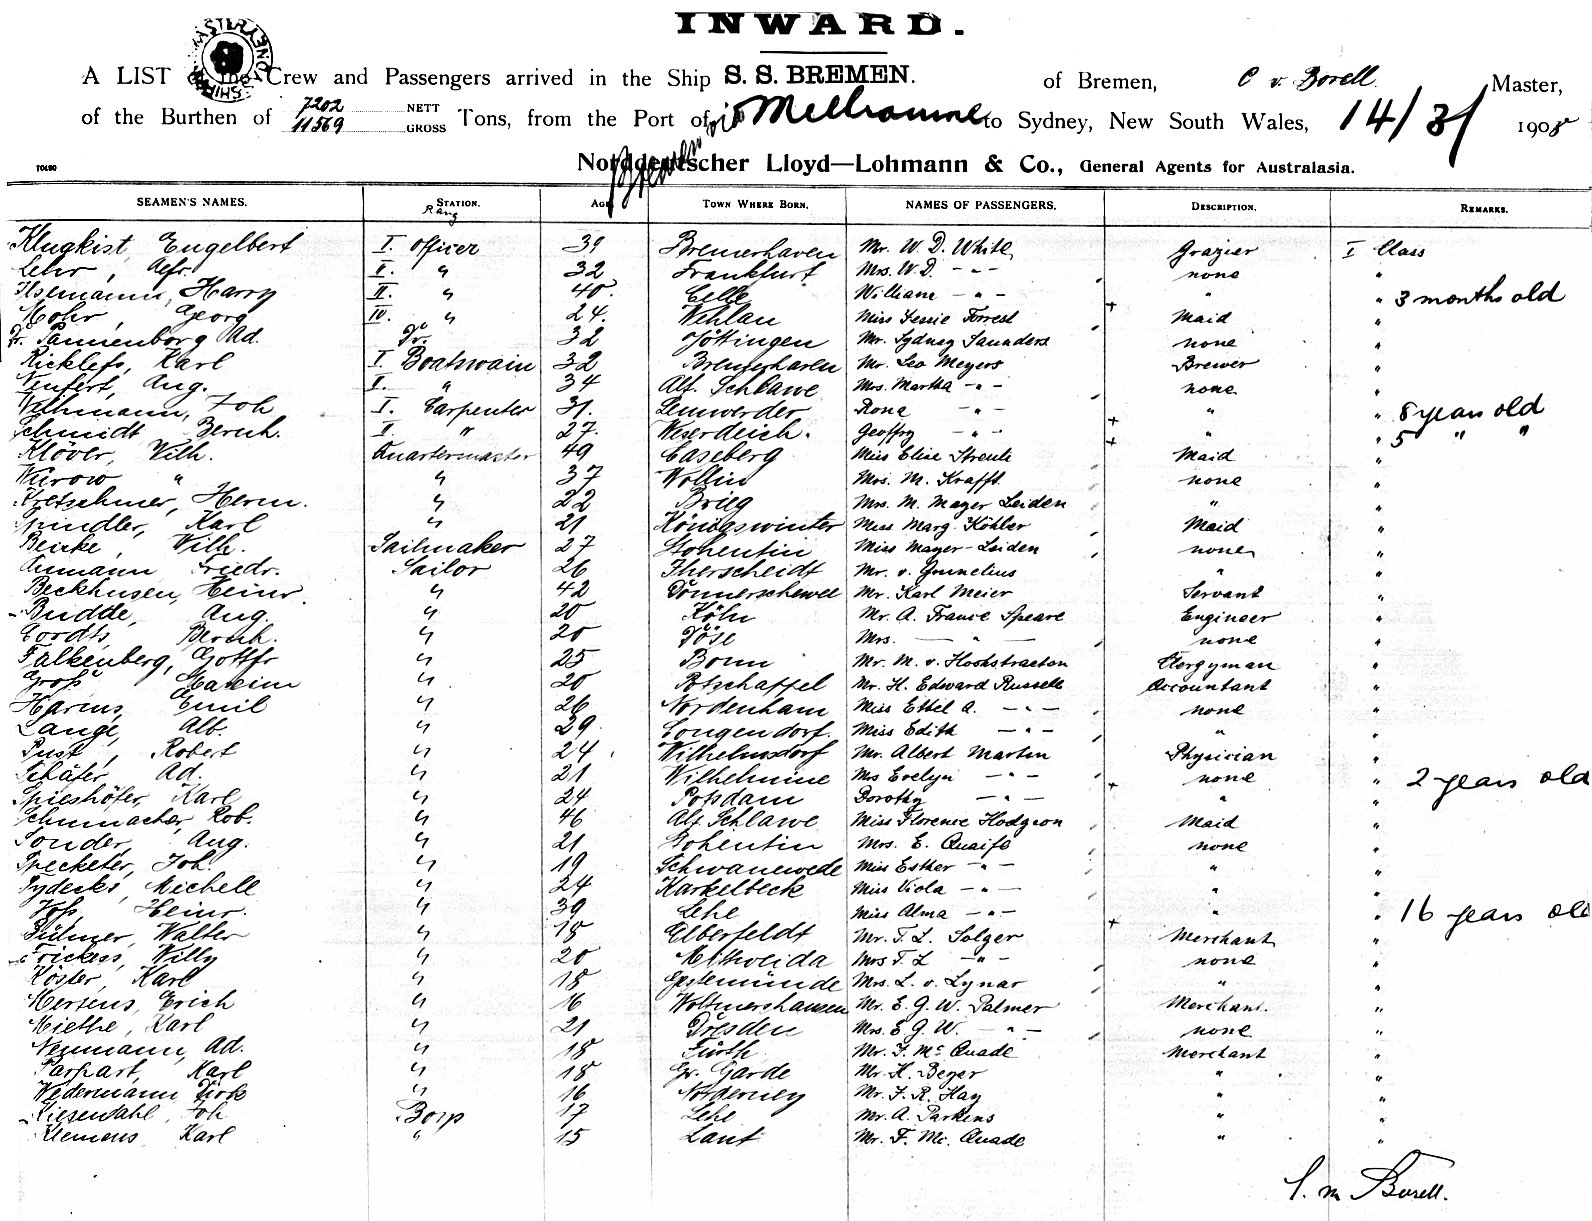 INWARD.
A LIST of the Crew and Passengers arrived in the Ship S. S. BREMEN. of Bremen, C v. Borell Master,
of the Burthen of 7202 NETT 11569 GROSS Tons, from the Port of Bremen via Melbourne to Sydney, New South Wales, 14/3/ 1908
Norddeutscher Lloyd—Lohmann & Co., General Agents for Australasia.
SEAMEN'S NAMES. STATION. Rang AGE TOWN WHERE BORN. NAMES OF PASSENGERS. DESCRIPTION. REMARKS.
Klugkist, Engelbert I. Officer 39 Bremerhaven Mr. W. D. White Grazier I Class
Lehr, Alfr. II. " 32 Frankfurt Mrs. W. D. - " - none "
Ilsemann, Harry II. " 40. Celle William - " - " " 3 months old
Mohr, Georg IV. " 24. Wehlau Miss Jessie Forrest Maid "
Dr. Tannenborg Ad. Dr. 32 Göttingen Mr. Sydney Saunders none "
Ricklefs, Karl I. Boatswain 32 Bremerhaven Mr. Leo Meyers Brewer "
Neufert, Aug. II. " 34 Alt. Schlawe Mrs. Martha - " - none "
Wethmann, Joh I. Carpenter 31. Lemwerder Rona - " - " " 8 years old
Schmidt Bernh. II " 27. Weserdeich. Geoffry - " - " " 5 " "
Klöver, Wilh. Quartermaster 49 Caseberg Miss Elise Streule Maid "
Wurow " " 37 Wollin Mrs. M. Krafft none "
Kretschmer, Herm. " 22 Brieg Mrs. M. Mayer Leiden " "
Spindler, Karl " 21 Königswinter Miss Marg. Köhler Maid "
Beicke, Wilh. Sailmaker 27 Stohentin Miss Mayer-Leiden none "
Aumann Friedr. Sailor 26 Iherscheidt Mr. v. " "
Beckhusen, Heinr. " 42 Donnerschwee Mr. Karl Meier Servant "
Budde, Aug. " 20 Köln Mr. A. France Speare Engineer "
Cordts, Bernh. " 20 Döse Mrs. — " — none "
Falkenberg, Gottfr " 25 Bonn Mr. M. v. Hookstraeton Clergyman "
Groß Maxim " 20 Potschappel Mr. H. Edward Russell Accountant "
Harms, Emil " 26 Nordenham Miss Ethel A. - " - none "
Lange, Alb. " 29 Longendorf. Miss Edith - " - " "
Pust, Robert " 24 Wilhelmsdorf Mr. Albert Martin Physician "
Schäfer, Ad. " 21 Wilhelmine Mrs Evelyn - " - none "
Spieshöfer, Karl " 24 Potsdam Dorothy - " - " " 2 years old
Schumacher, Rob. " 46 Alt Schlawe Miss Florence Hodgson Maid "
Sonder, Aug. " 21 Stohentin Mrs. E. Quaife none "
Specketer, Joh. " 19 Schwanewede Miss Esther - " - " "
Tydecks, Michell " 24 Karkelbeck Miss Viola - " - " "
Voß, Heinr. " 39 Lehe Miss Alma - " - " " 16 years old
Bülmer, Walter " 18 Elberfeldt Mr. T. L. Solger Merchant "
Frickes, Willy " 20 Mittweida Mrs T. L - " - none "
Köster, Karl " 18 Geestemünde Mrs. L. v. Lynar " "
Mertens, Erich " 16 Woltmershausen Mr. E. G. W. Palmer Merchant. "
Miethe, Karl " 21 Dresden Mrs. E. G. W. - " - none "
Neumann, Ad. " 18 Fürth Mr. F. Mc Quade Merchant "
Parpart, Karl " 18 Gr. Garde Mr. K. Beger " "
Wedermann Dirk " 16 Norderney Mr. F. R. Hay " "
Kiesendahl, Joh Boys 17 Lehe Mr. A. Parkins " "
Klemens Karl " 15 Mr. F. Mc. Quade " "